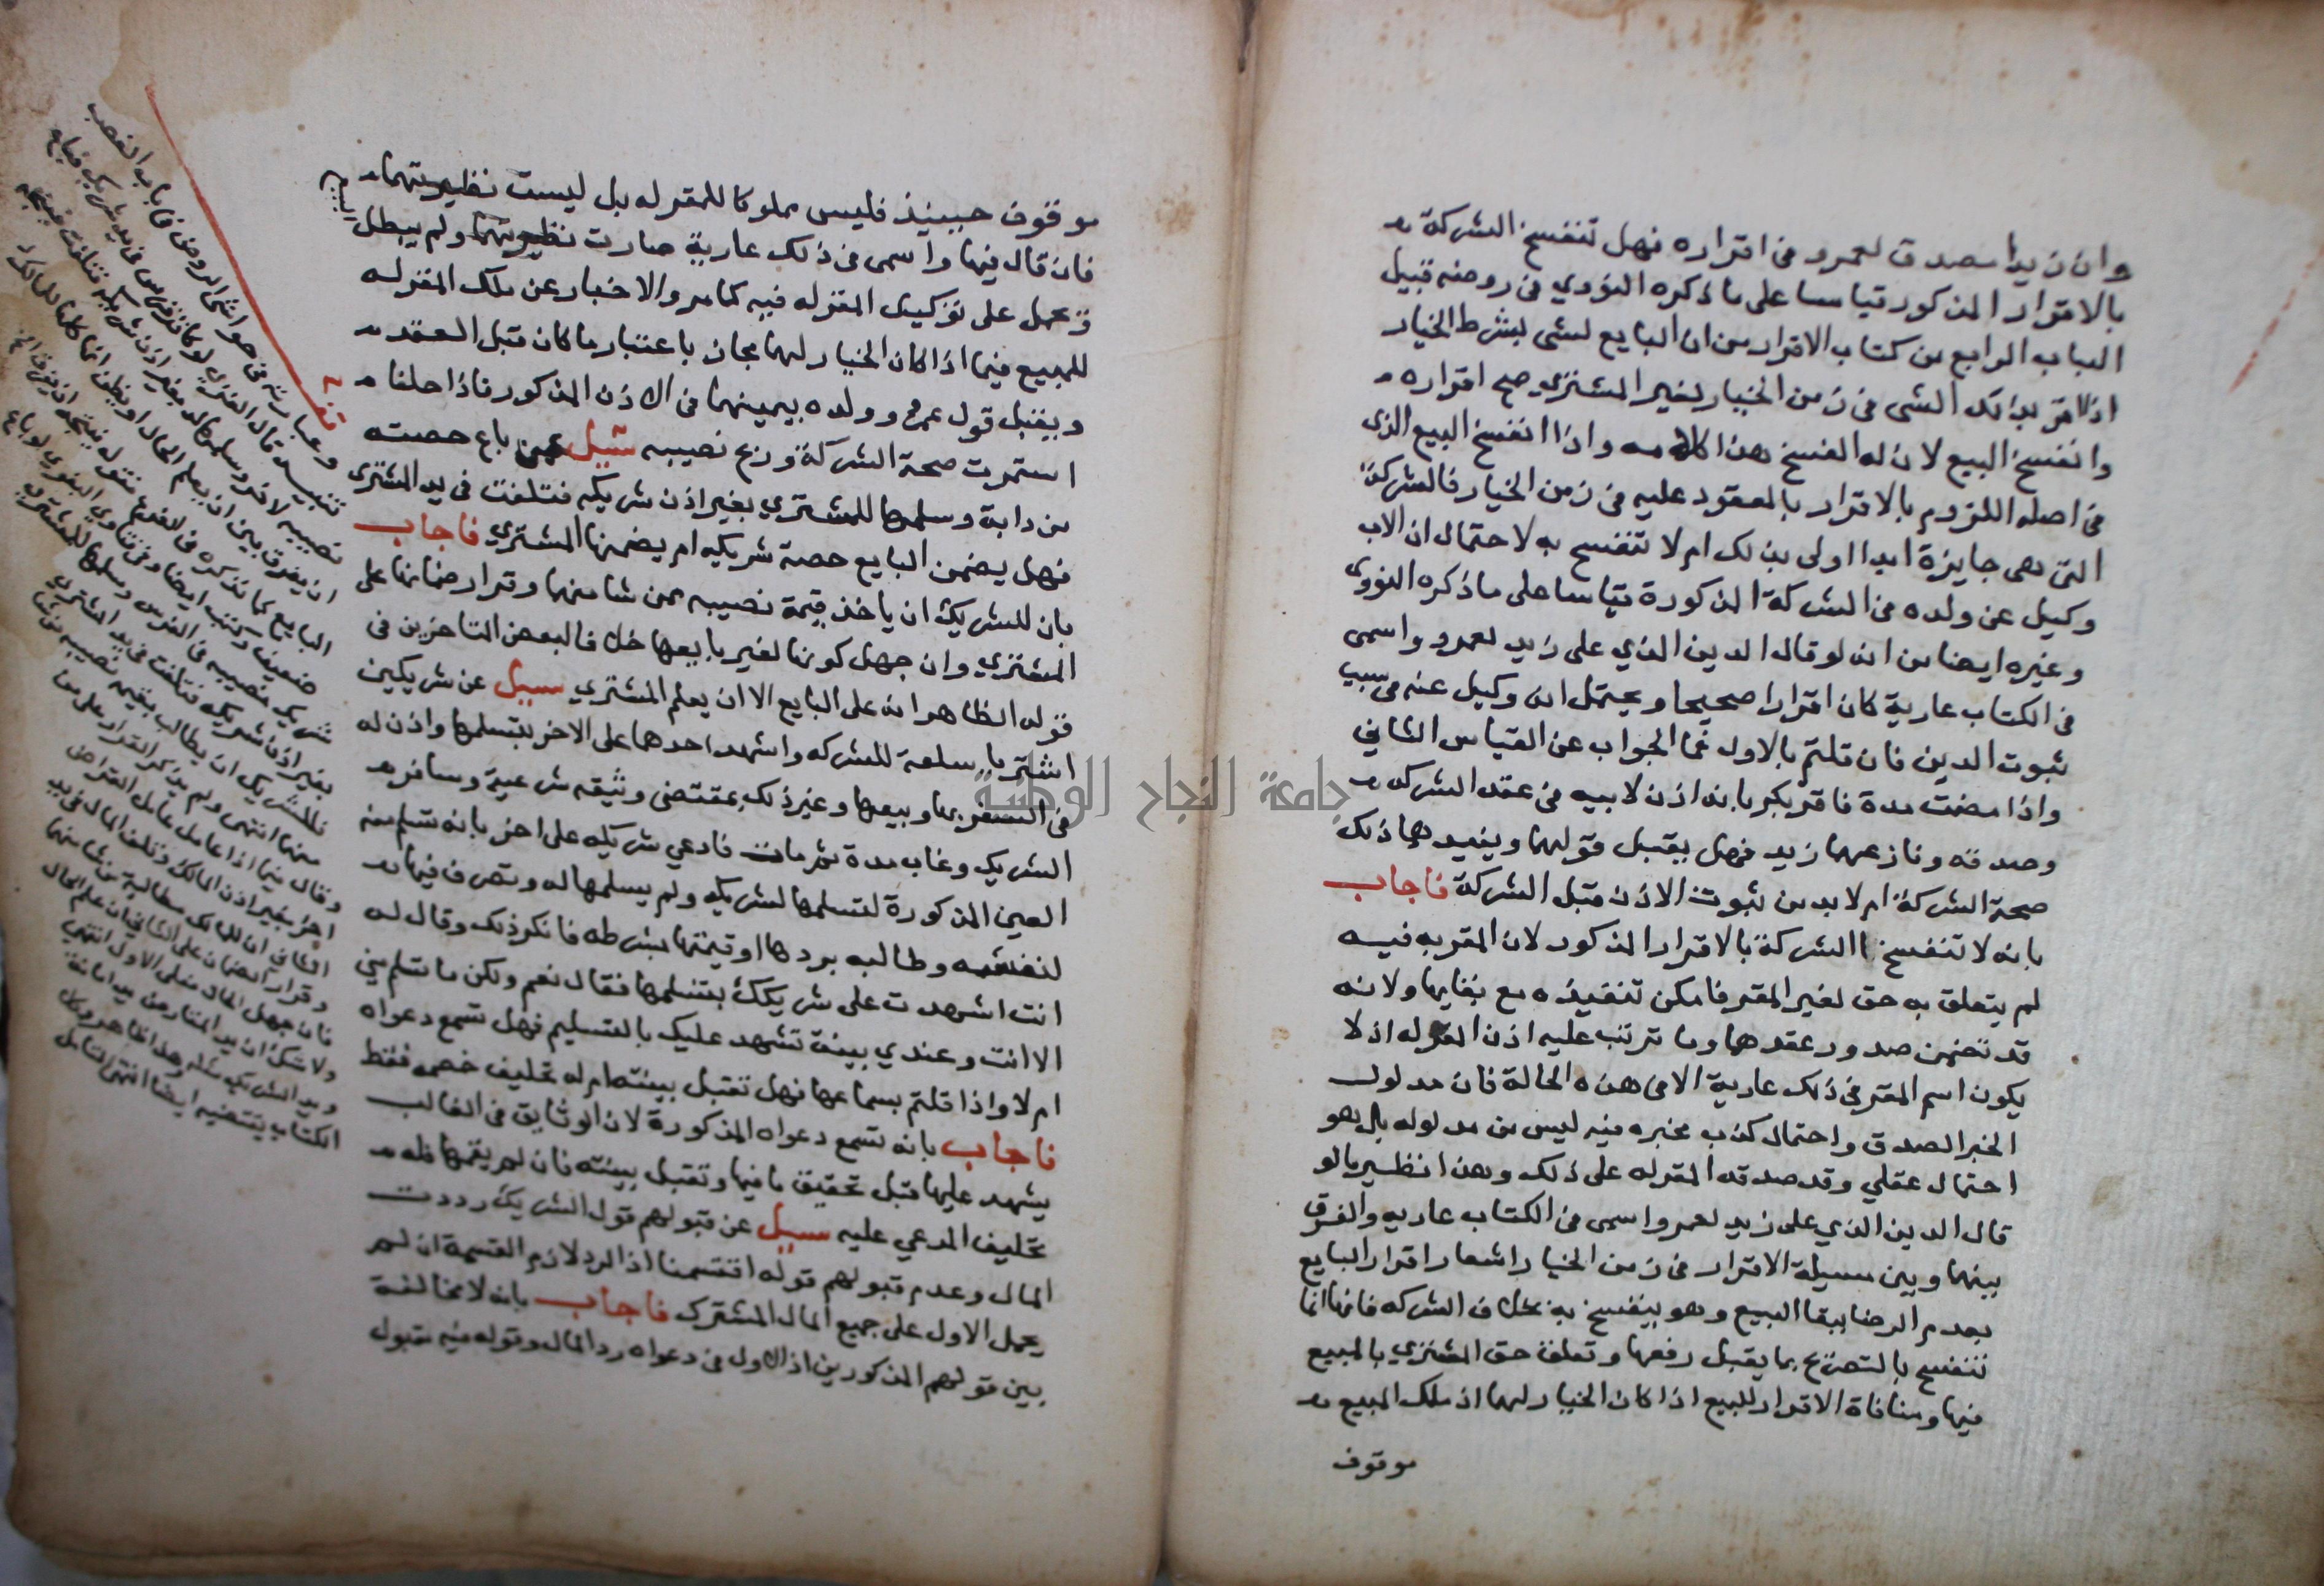 وان زيدا مصدق لعمرو في اقراره فهل تنفسخ الشركة
بالاقرار المذكور قياسا على ما ذكره النووي في روضه قبيل
الباب الرابع من كتاب الاقرار من ان البايع لشى بشرط الخيار
اذا اقر بذلك الشى في زمن الخيار لغير المشتري صح اقراره
وانفسخ البيع لان له الفسخ هذا كلامه واذا انفسخ البيع الذى
في اصله اللزوم بالاقرار بالمعقود عليه في زمن الخيار فالشركة
التي هى جايزة ابدا اولى بذلك ام لا تنفسخ به لاحتمال ان الاب
وكيل عن ولده في الشركة المذكورة قياسا على ما ذكره النووى
وغيره ايضا من انه لو قال الدين الذي على زيد لعمرو واسمى
في الكتاب عارية كان اقرارا صحيحا ويحتمل انه وكيل عنه في سبب
ثبوت الدين فان قلتم بالاول فما الجواب عن القياس الثاني
واذا مضت مدة فاقر بكر بانه اذن لابيه في عقد الشركه
وصدقه ونازعهما زيد فهل يقبل قولهما ويفيدهما ذلك
صحة الشركة ام لا بد من ثبوت الاذن قبل الشركة فاجاب
بانه لا تنفسخ الشركة بالاقرار المذكور لان المقر به فيه
لم يتعلق به حق لغير المقر فامكن تنفيذه مع بقايها ولانه
قد تضمن صدور عقدهما وما ترتب عليه اذن المقر له اذ لا
يكون اسم المقر في ذلك عارية الا في هذه الحالة فان مدلول
الخبر الصدق واحتمال كذب مخبره فيه ليس من مدلوله بل هو
احتمال عقلي وقد صدقه المقر له على ذلك وهذا نظير ما لو
قال الدين الذي على زيد لعمرو واسمى في الكتاب عاريه والفرق
بينها وبين مسيلة الاقرار في زمن الخيار اشعار اقرار البايع
بعدم الرضا ببقا البيع وهو ينفسخ به بخلاف الشركه فانها انما
تنفسخ بالتصريح بما يقبل رفعها وتعلق حق المشتري بالمبيع
فيها ومنافاة الاقرار للبيع اذا كان الخيار لهما اذ ملك المبيع
موقوف
موقوف حينيذ فليس مملوكا للمقر له بل ليست نظيرتهما
فان قال فيها واسمى في ذلك عارية صارت نظيرتها ولم يبطل البيع
وتحمل على توكيل المقر له فيه كما مر والاخبار عن ملك المقر له
للمبيع فيما اذا كان الخيار لهما مجاز باعتبار ما كان قبل العقد
ويقبل قول عمرو وولده بيمينهما في الاذن المذكور فاذا حلفا
استمرت صحة الشركة وربح نصيبه سئل عمن باع حصته
من دابة وسلمها للمشتري بغير اذن شريكه فتلفت في يد المشترى
فهل يضمن البايع حصة شريكه ام يضمنها المشتري فاجاب
بان للشريك ان ياخذ قيمة نصيبه ممن شا منهما وقرار ضمانها على
المشتري وان جهل كونها لغير بايعها خلافا لبعض المتاخرين في
قوله الظاهر انه على البايع الا ان يعلم المشتري سيل عن شريكين
اشتريا سلعة للشركه واشهد احدهما على الاخر بتسلمها واذن له
في السفر بها وبيعها وغير ذلك بمقتضى وثيقه شرعية وسافر
الشريك وغاب مدة ثم مات فادعي شريكه على اخر بانه تسلم منه
العين المذكورة لتسلمها لشريكه ولم يسلمها له وتصرف فيها
لنفسه وطالبه بردها او قيمتها بشرطه فانكر ذلك وقال له
انت اشهدت على شريكك بتسلمها فقال نعم ولكن ما تسلم مني
الا انت وعندي بينة تشهد عليك بالتسليم فهل تسمع دعواه
ام لا واذا قلتم بسماعها فهل تقبل بينته ام له تحليف خصمه فقط
فاجاب بانه تسمع دعواه المذكورة لان الوثايق في الغالب
يشهد عليها قبل تحقيق ما فيها وتقبل بينته فان لم يقمها فله
تحليف المدعي عليه سيل عن قبولهم قول الشريك رددت
المال وعدم قبولهم قوله اقتسمنا اذ الرد لازم القسمة ان لم
يحمل الاول على جميع المال المشترك فاجاب بانه لا مخالفة
بين قولهم المذكورين اذ الاول في دعواه رد المال وقوله فيه مقبول
وعبارته في حواشي الروض في باب الغصب
تنبيه قال الغزي لو كان فرس في يد شريكه فباع
نصيبه لاخر وسلم له بغير اذن شريكه فتلفت
البايع كما نذكره في الفروع
ضعيف وكتب ايضا وفي فتاوي البغوي لو باع
شريك نصيبه في الفرس وسلمها للمشتري
بغير اذن شريكه فتلفت في يد المشتري
فللشريك ان يطالب بقيمة نصيبه من شا
منهما انتهى ولم يذكر القرار على من
وقال فيما اذا عامل عامل القراض
اخر بغير اذن المالك وتلف المال في يد
الثاني ان للمالك مطالبة من شا منهما
وقرار الضمان على الثاني ان علم الحال
فان جهل الحال فعلى الاول انتهى
ولا شك ان يد المقارض يد امانة
ويد الشريك مثله وهذا ظاهر وكلام
الكتاب يقتضيه ايضا انتهى فليتامل
جامعة النجاح الوطنية